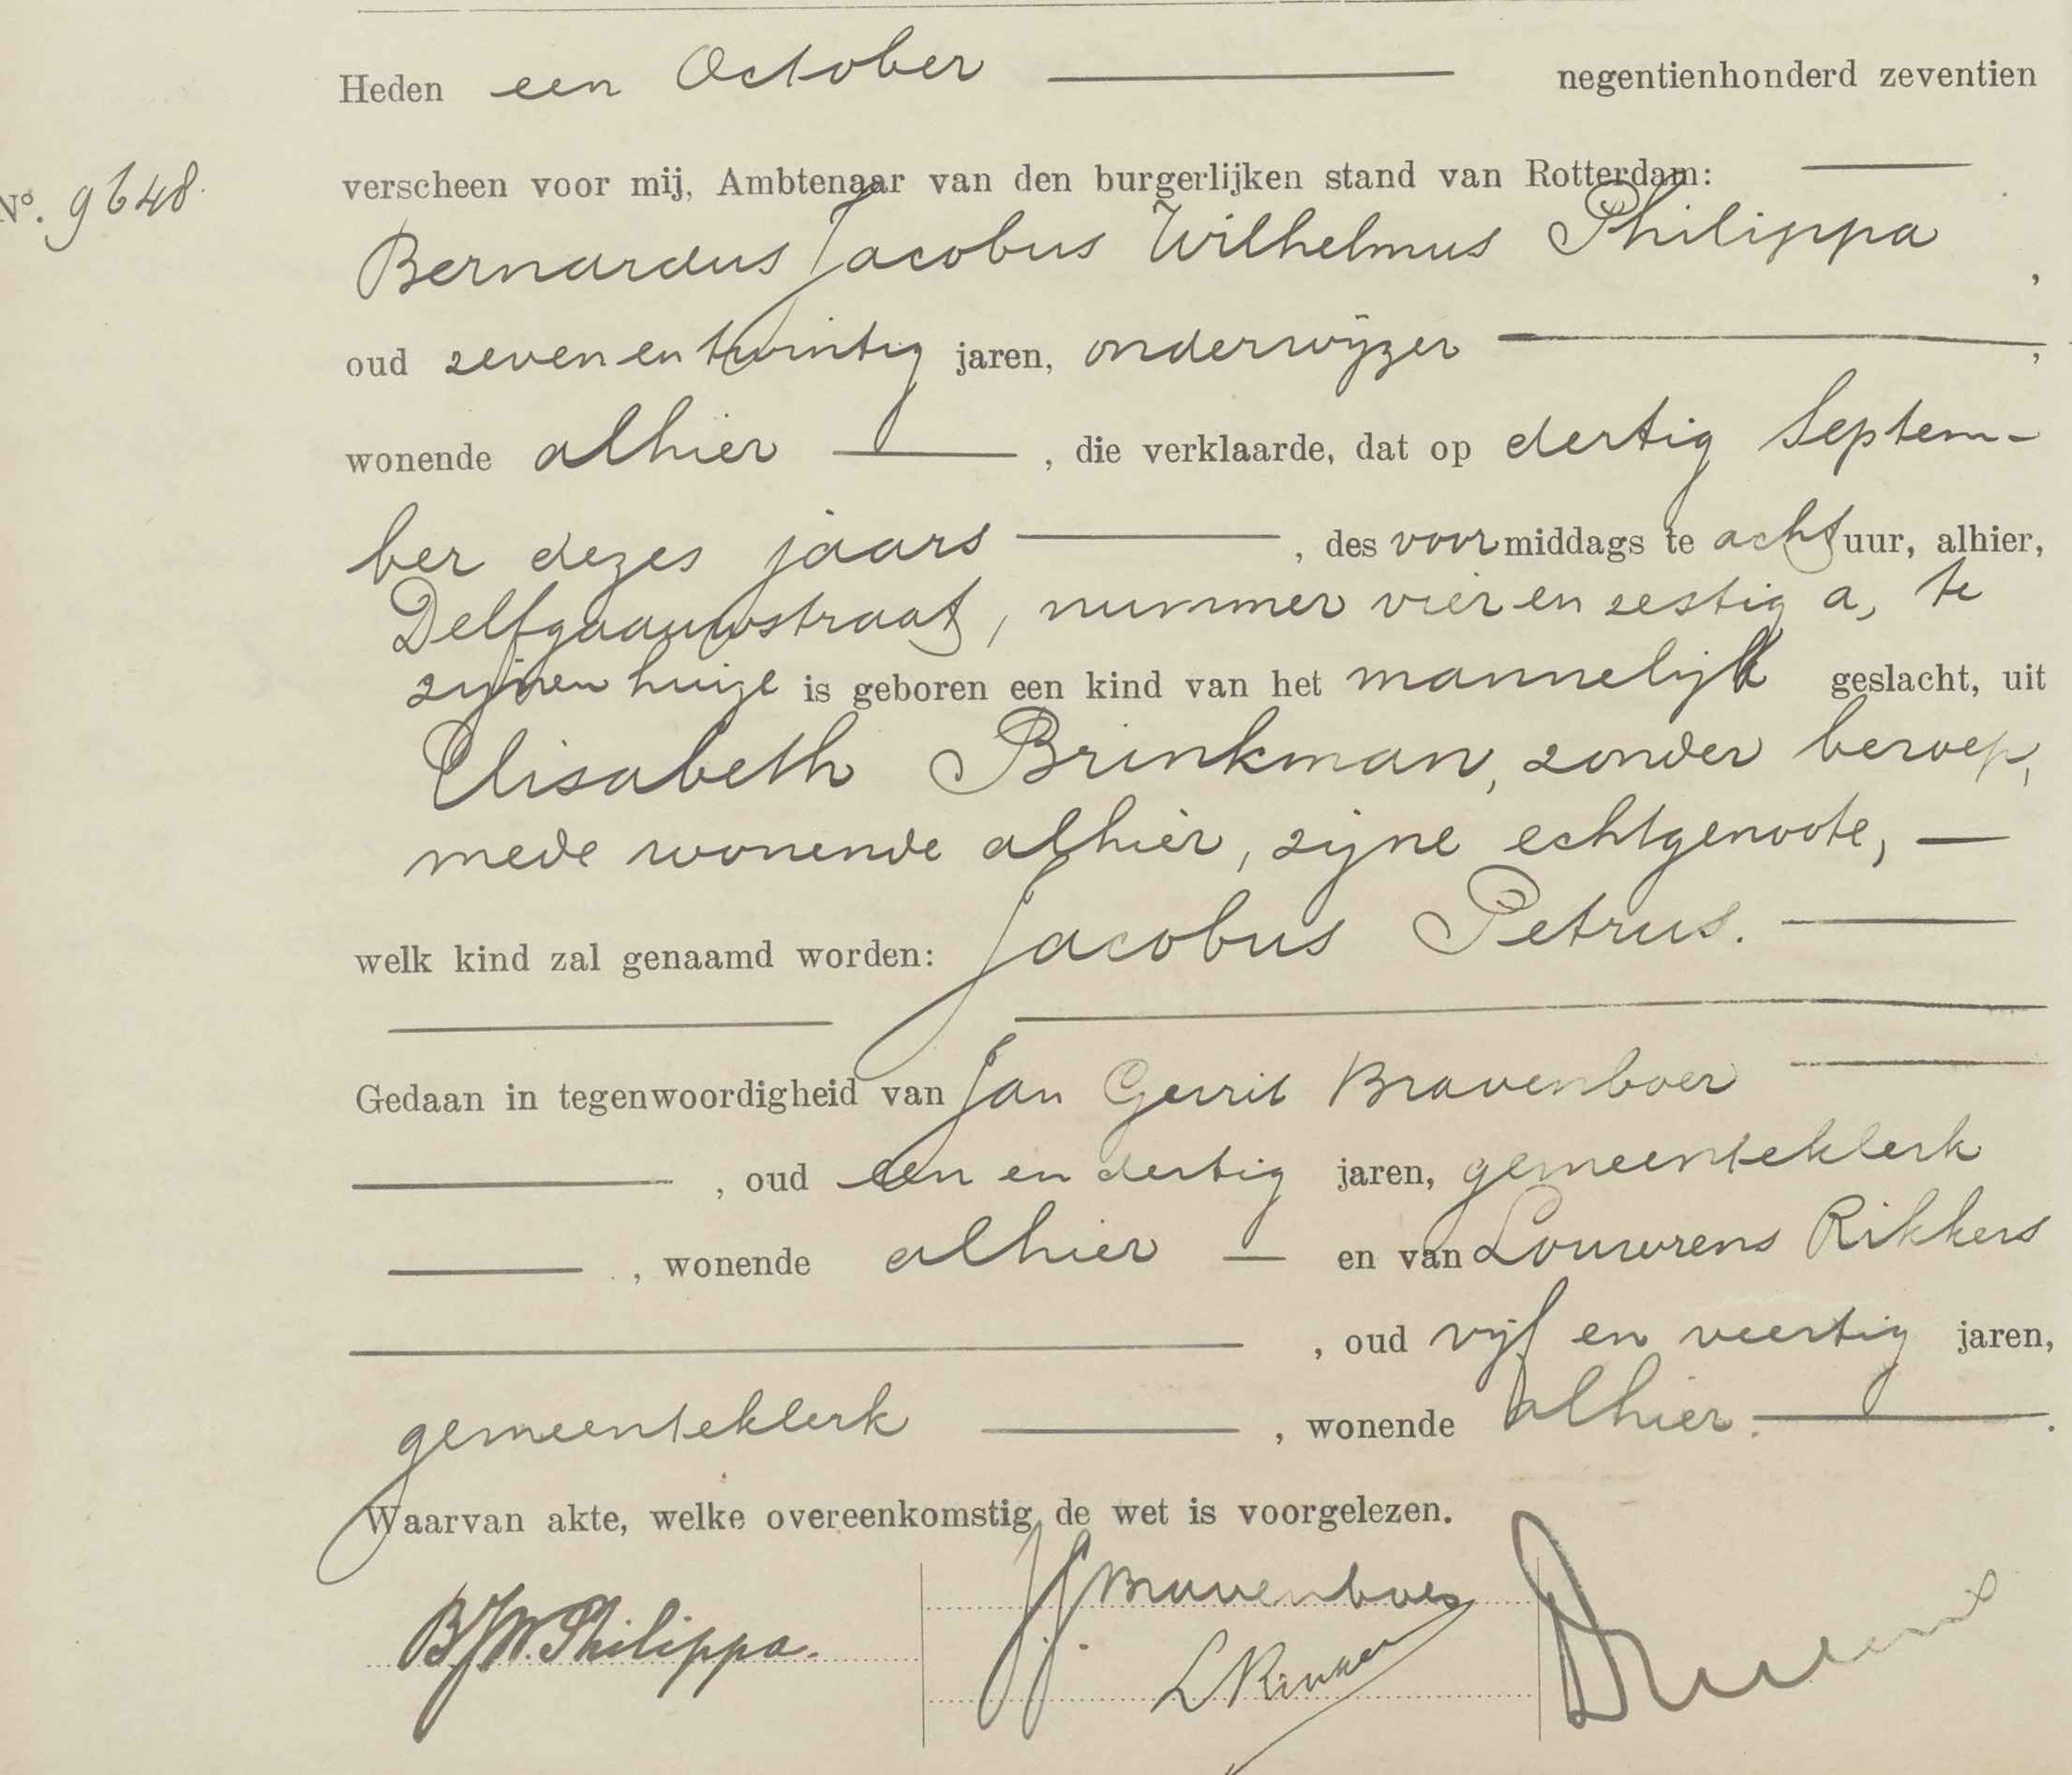 Heden een October negentienhonderd zeventien
No. 9648.
verscheen voor mij, Ambtenaar van den burgerlijken stand van Rotterdam:
Bernardus Jacobus Wilhelmus Philippa,
oud zeven en twintig jaren, onderwijzer,
wonende alhier, die verklaarde, dat op dertig Septem-
ber dezes jaars, des voormiddags te acht uur, alhier,
Delfgaauwstraat, nummer vier en zestig a, te
zijnen huize is geboren een kind van het mannelijk geslacht, uit
Elisabeth Brinkman, zonder beroep,
mede wonende alhier, zijne echtgenoote,
welk kind zal genaamd worden: Jacobus Petrus.
Gedaan in tegenwoordigheid van Jan Gerrit Bravenboer
, oud een en dertig jaren, gemeenteklerk
, wonende alhier en van Louwrens Rikkers
, oud vijf en veertig jaren,
gemeenteklerk, wonende alhier.
Waarvan akte, welke overeenkomstig de wet is voorgelezen.
BJW. Philippa.
J.G. Bravenboer
L Rikkers